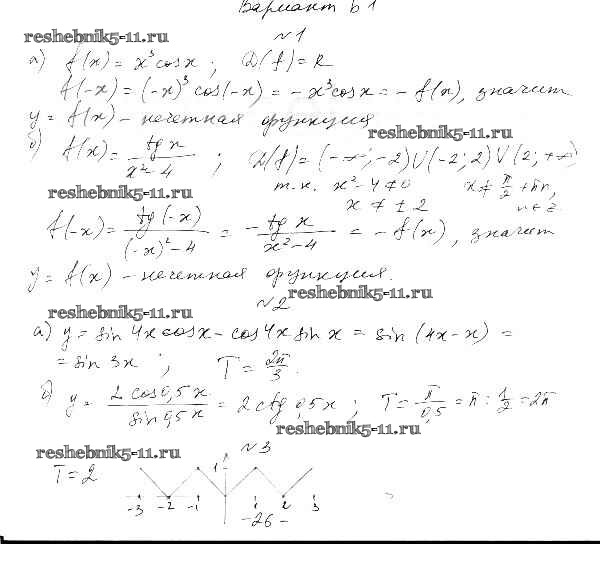 Вариант b 1
№1
reshebnik5-11.ru
а) f(x) = x³cosx ; D(f) = R
f(-x) = (-x)³ cos(-x) = -x³cosx = -f(x), значит
y = f(x) - нечетная функция
reshebnik5-11.ru
б) f(x) = tg x / x²-4 ; D(f) = (-∞; -2)∪(-2; 2)∪(2; +∞)
т.к. x²-4≠0 x≠ π/2 + πn,
reshebnik5-11.ru
x ≠ ±2 n∈Z.
f(-x) = tg(-x) / (-x)²-4 = - tg x / x²-4 = -f(x), значит
y = f(x) - нечетная функция.
№2
reshebnik5-11.ru
reshebnik5-11.ru
а) y = sin 4x cosx - cos4x sin x = sin (4x-x) =
= sin 3x ; T = 2π/3.
б) y = 2 cos0,5x / sin0,5x = 2ctg 0,5x ; T = π/0,5 = π : 1/2 = 2π
reshebnik5-11.ru
reshebnik5-11.ru
№3
T = 2
1
-3 -2 -1 1 2 3
-26-